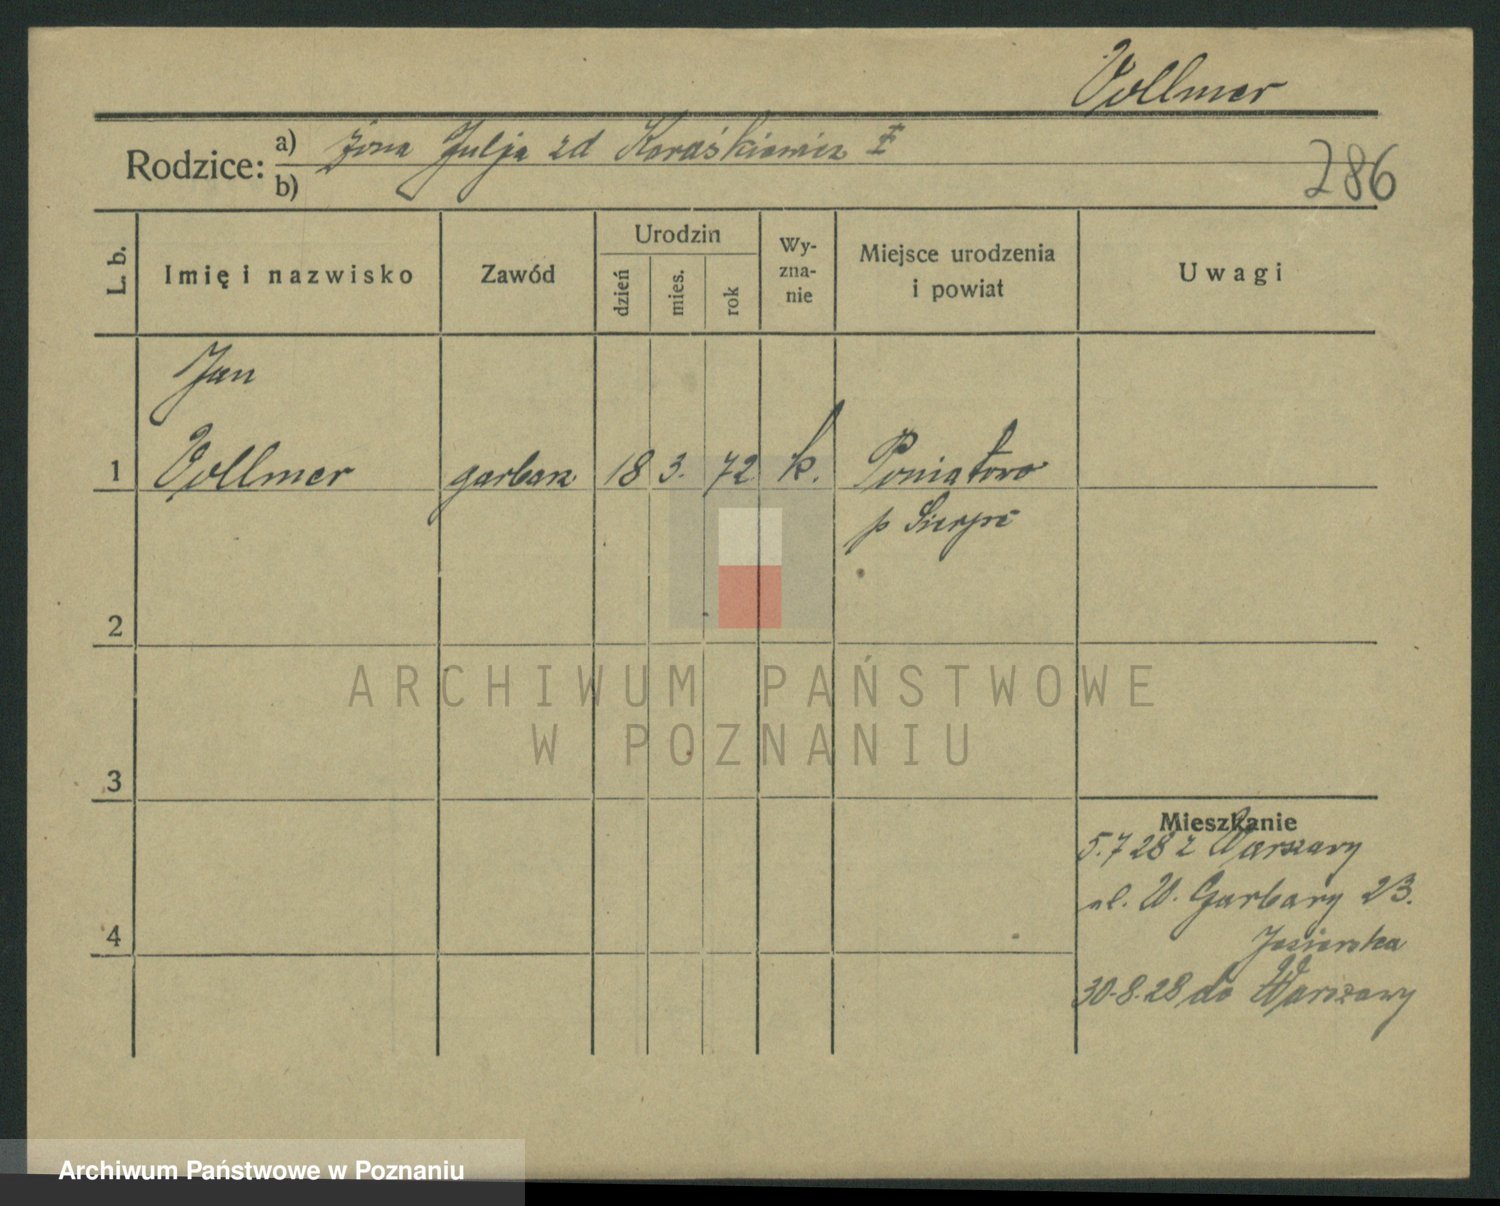 Vollmer
Rodzice: a) żona Julja zd Koraśkiewicz
b)
286
L. b.
Imię i nazwisko
Zawód
Urodzin
dzień
mies.
rok
Wy-
zna-
nie
Miejsce urodzenia
i powiat
Uwagi
Jan
1 Vollmer garbarz 18 3. 72 k. Poniatowo
p Sierpc
2
3
4
Mieszkanie
5.7 28 z Warszawy
ul. W. Garbary 23.
30.8.28 do Warszawy
ARCHIWUM PAŃSTWOWE
W POZNANIU
Archiwum Państwowe w Poznaniu